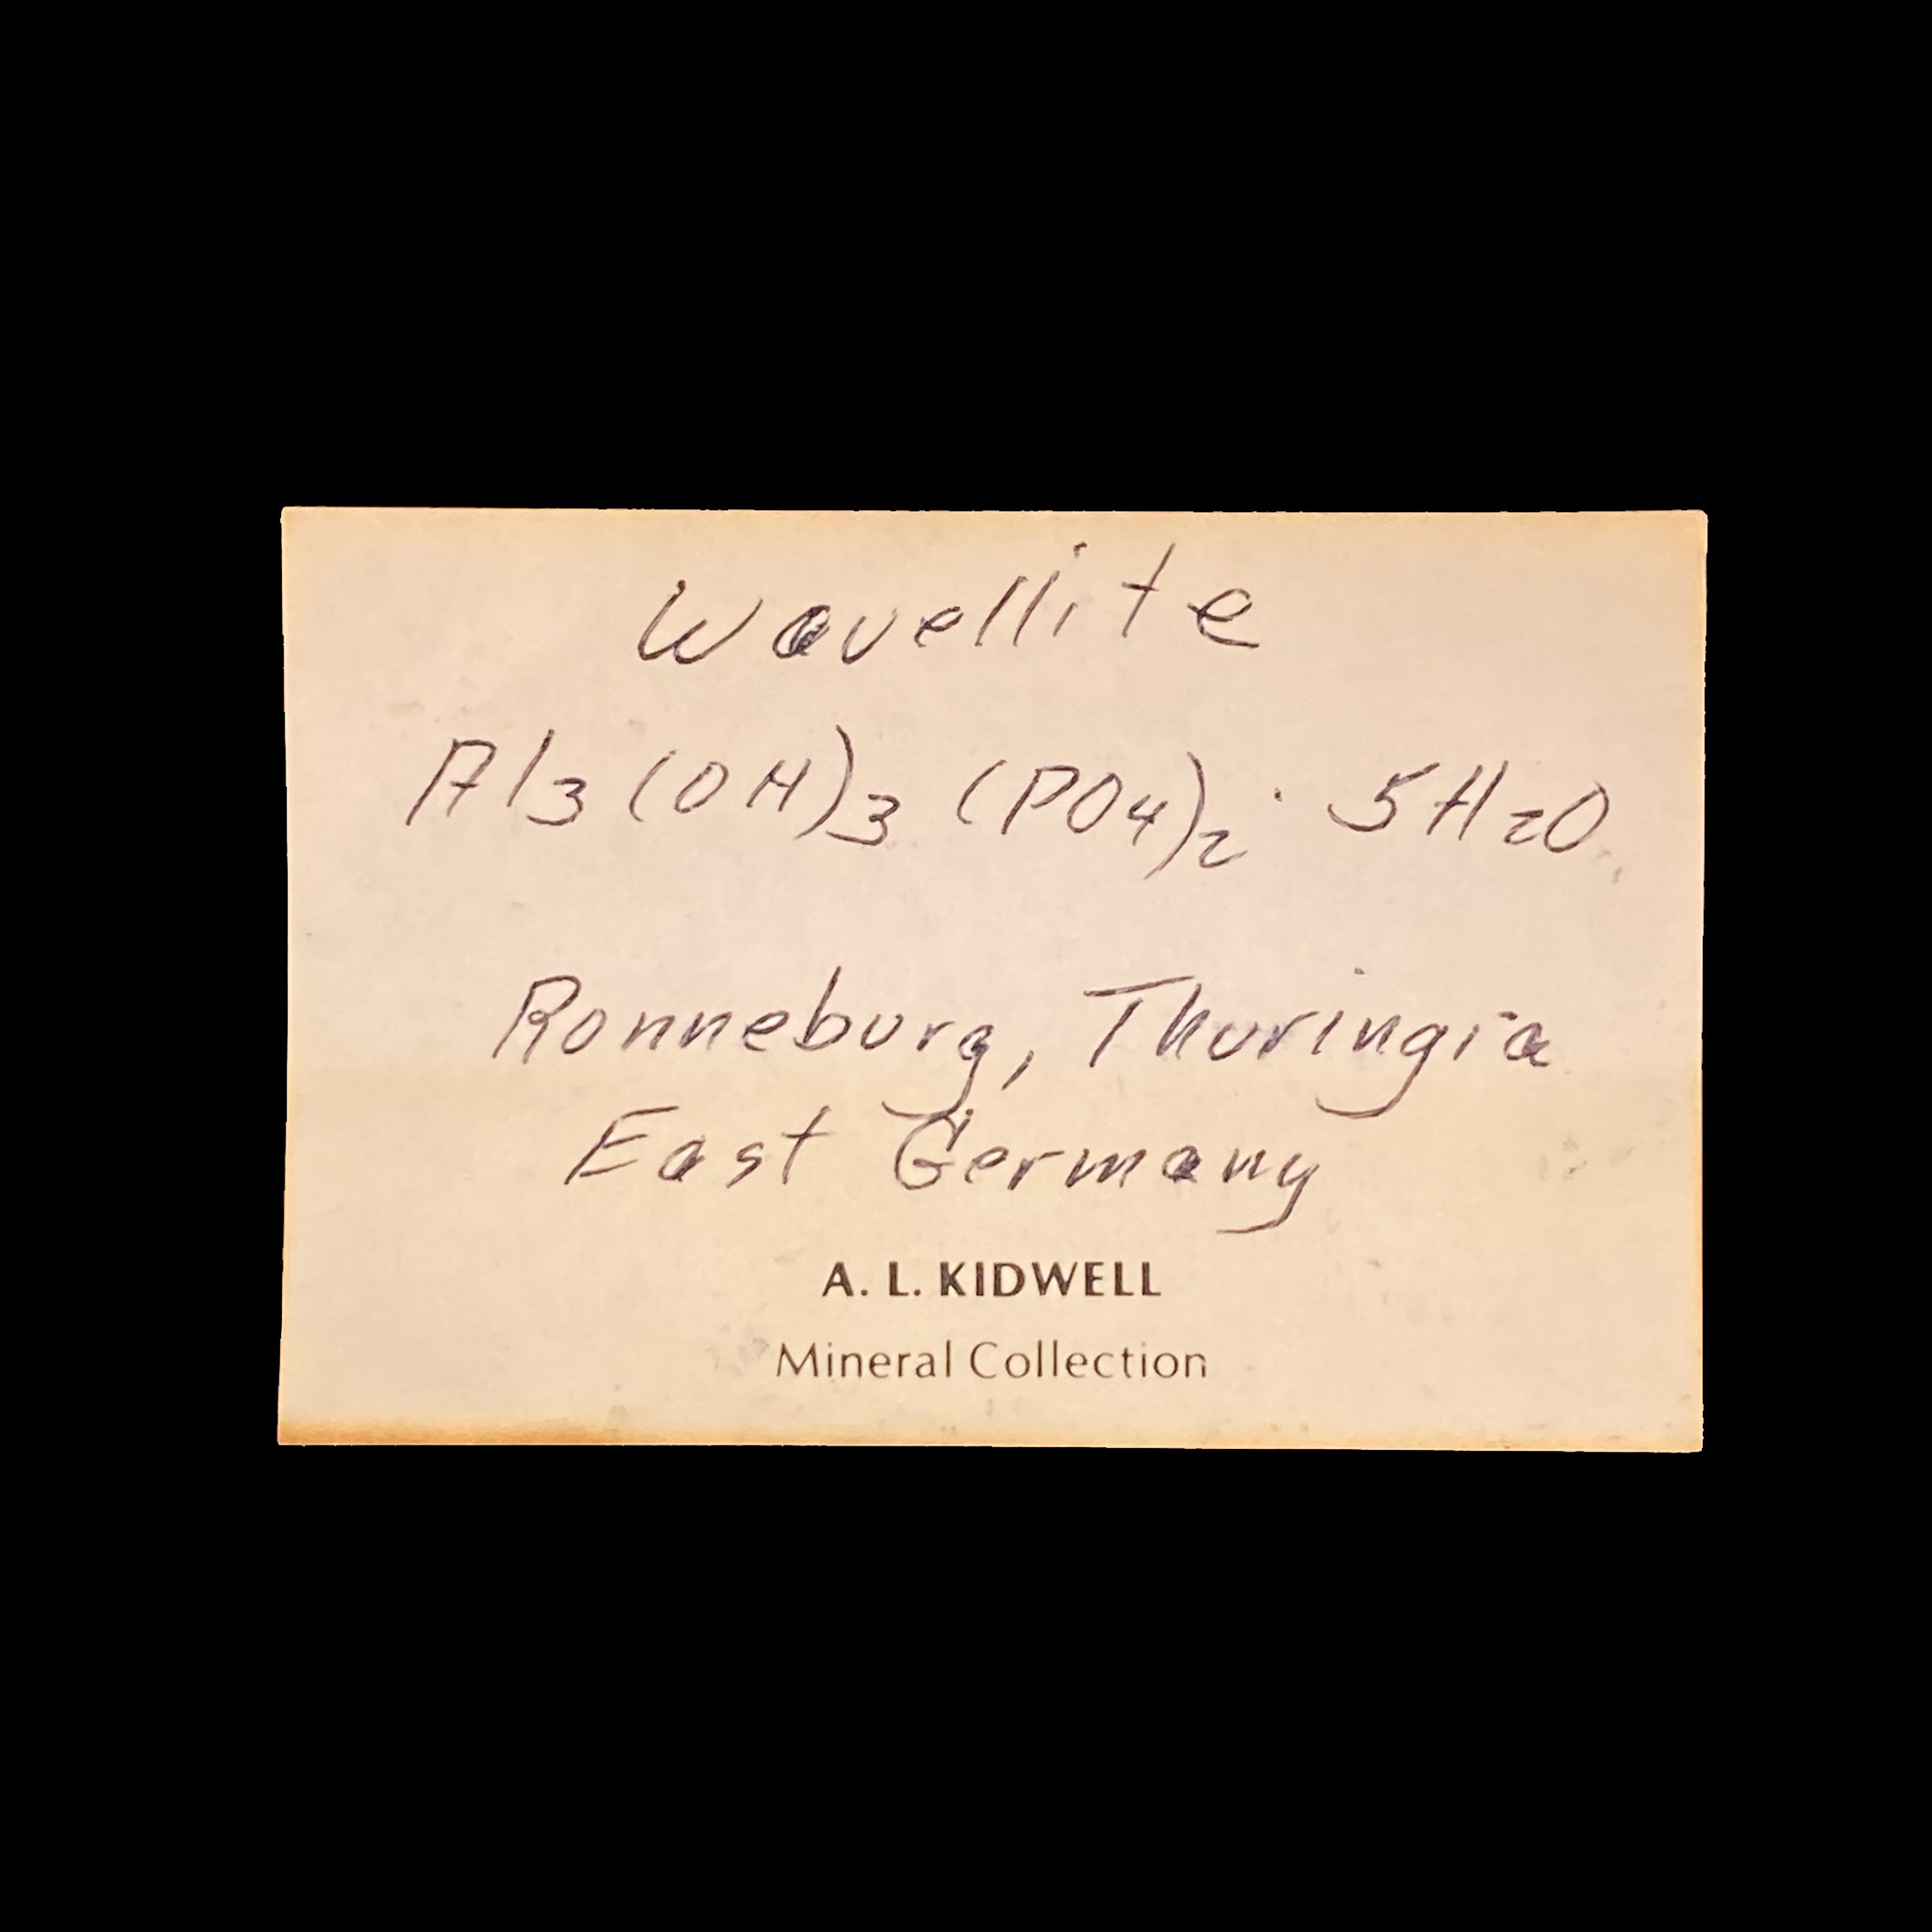 Wavellite
Al₃(OH)₃(PO₄)₂·5H₂O
Ronneburg, Thuringia
East Germany
A. L. KIDWELL
Mineral Collection